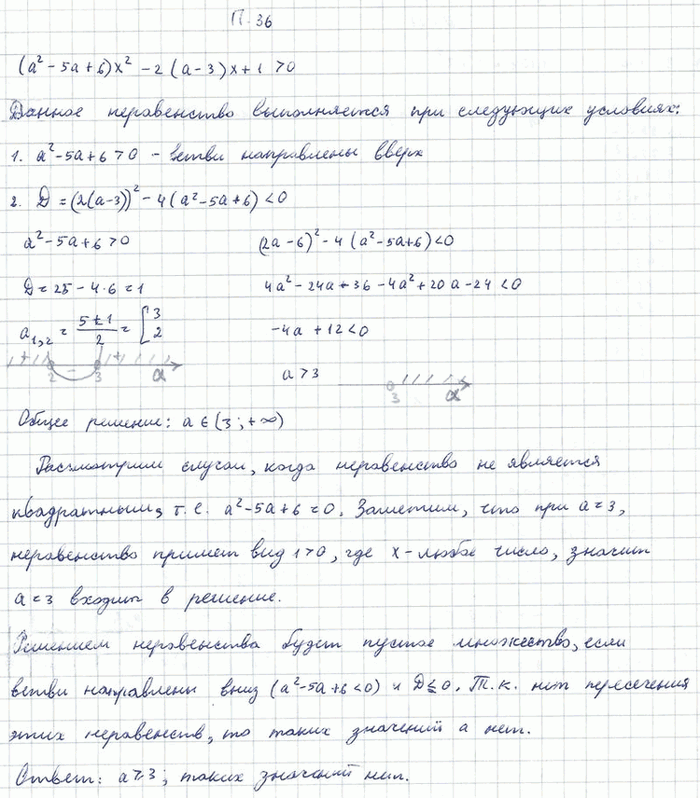 П. 36
(a² - 5a + 6)x² - 2(a - 3)x + 1 > 0
Данное неравенство выполняется при следующих условиях:
1. a² - 5a + 6 > 0 - ветви направлены вверх
2. Д = (2(a-3))² - 4(a² - 5a + 6) < 0
a² - 5a + 6 > 0
(2a - 6)² - 4(a² - 5a + 6) < 0
Д = 25 - 4·6 = 1
4a² - 24a + 36 - 4a² + 20a - 24 < 0
a₁,₂ = (5 ± 1)/2 = [3 2
-4a + 12 < 0
+ - +
2 3 a
a > 3
3 a
Общее решение: a ∈ (3; +∞)
Рассмотрим случаи, когда неравенство не является
квадратным, т.е. a² - 5a + 6 = 0. Заметим, что при a = 3,
неравенство примет вид 1 > 0, где x - любое число, значит
a = 3 входит в решение.
Решением неравенства будет пустое множество, если
ветви направлены вниз (a² - 5a + 6 < 0) и Д ≤ 0. Т.к. нет пересечения
этих неравенств, то таких значений a нет.
Ответ: a ≥ 3; таких значений нет.